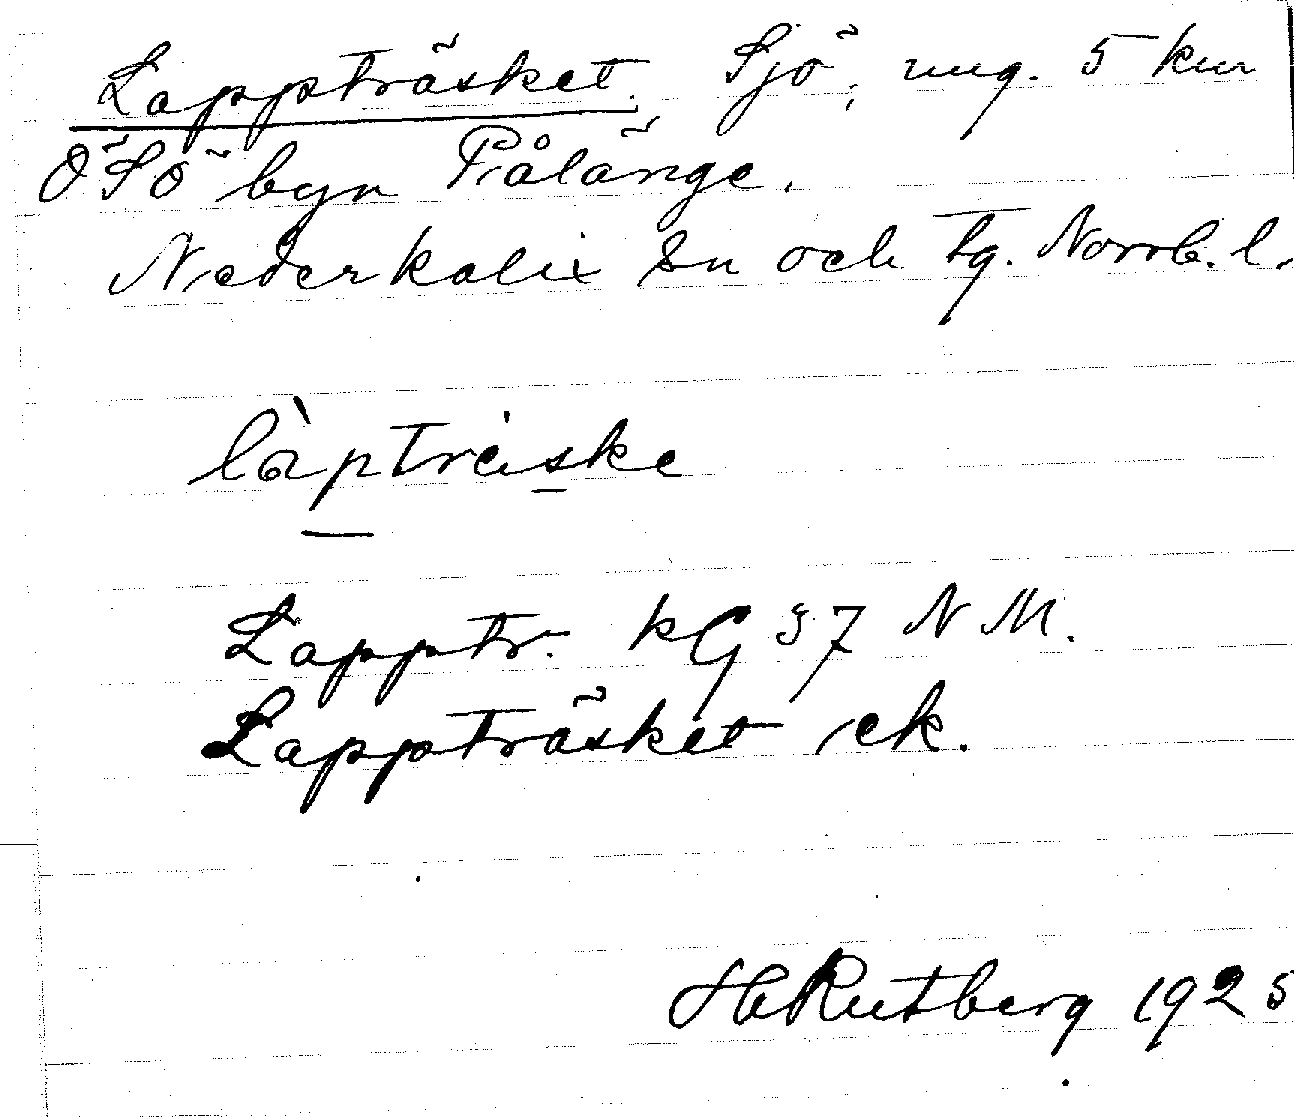 Lappträsket. Sjö, ung. 5 km
ÖSÖ byn Pålänge.
Nederkalix sn och tg. Norrb. l.
làptrèske
Lapptr. kG 37 NM.
Lappträsket ek.
H Rutberg 1925